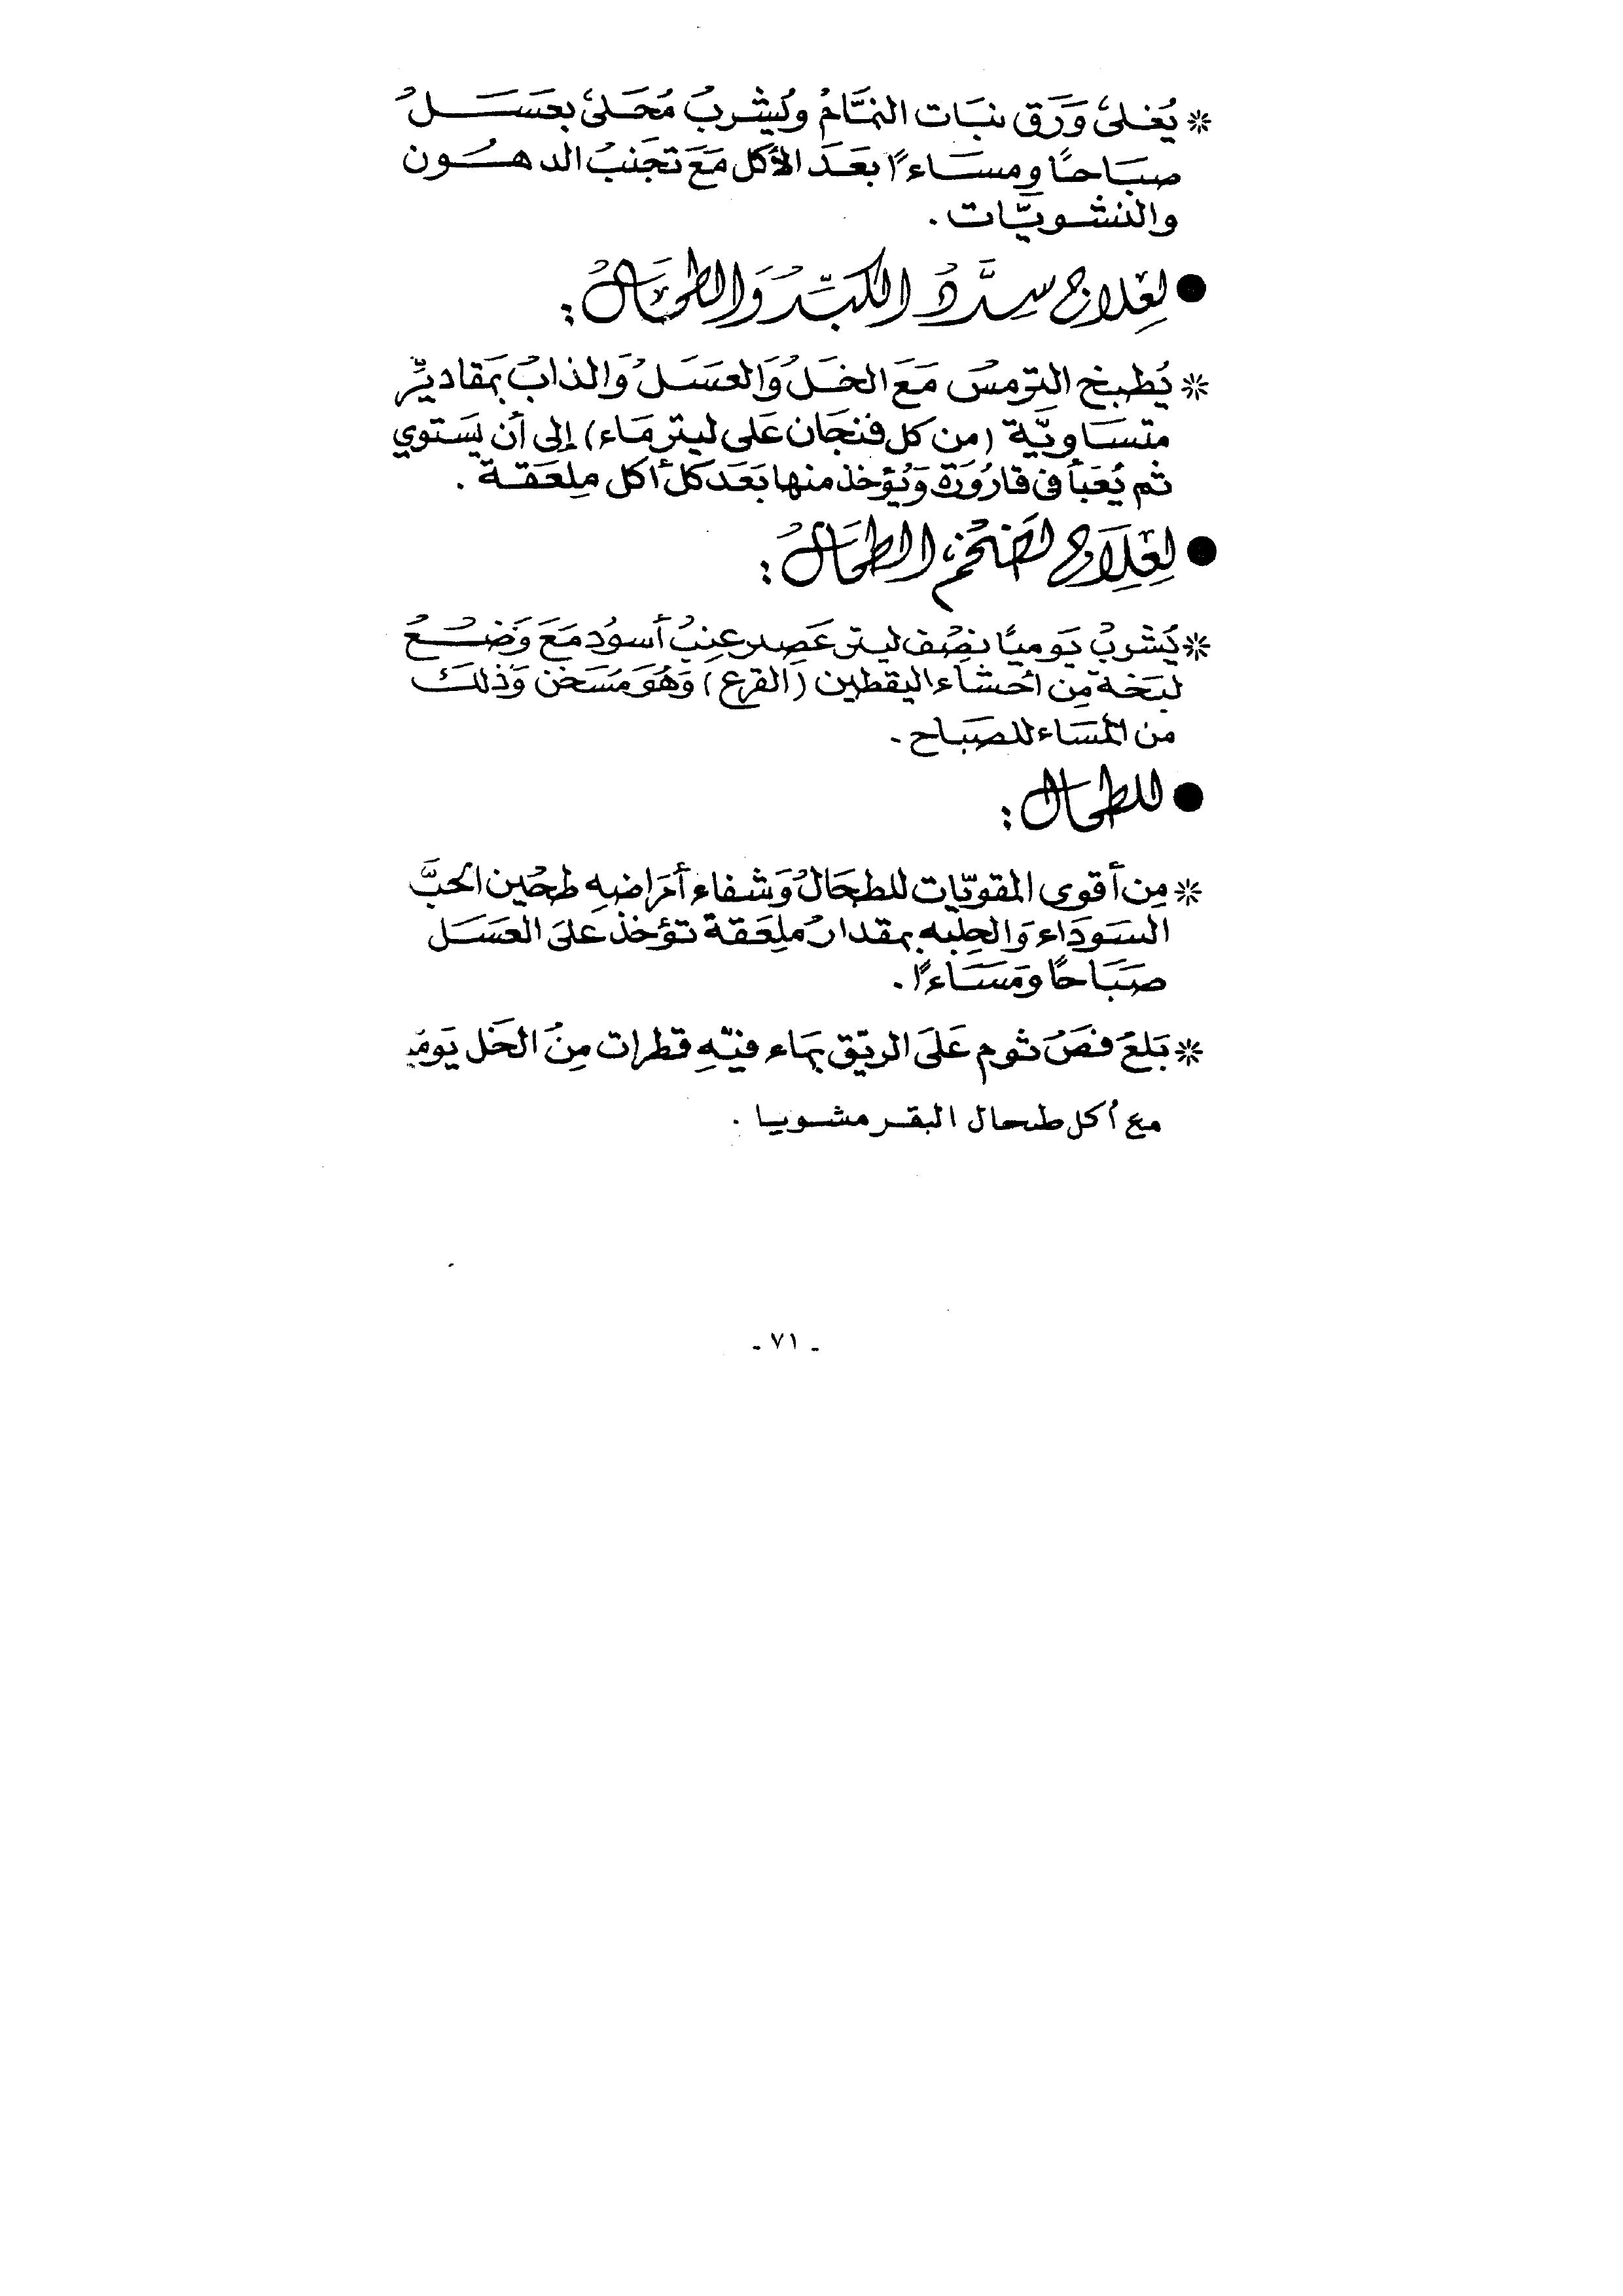 * يُغلىٰ وَرَق نبَات النمَّامْ ويُشربُ مُحَلىٰ بعَسَلُ
صبَاحًا ومسَاءًا بعَدَ الأكل مَعَ تجَنبُ الدهُون
والنشويَّات .
● لعِلاج سِدَّدُ الكبِّدُ وَالطحَالُ :
* يُطبخ الترمسُ مَعَ الخَلُ وَالعسَلُ وَالذابُ بمَقاديرِّ
متسَاويَّة (من كل فنجَان عَلى ليتر مَاء) إلى أن يسَتوي
ثم يُعَبأ فى قارُورَة وَيُؤخذ منها بعَدَ كل أكل ملِعَقة .
● لعِلَاج تضخُم الطحَالُ :
* يُشربُ يَوميًا نصِفُ ليتر عَصِير عِنبُ أسوُد مَعَ وَضعُ
لبَخة مِن أحشاء اليقطين (القرع) وَهُوَ مُسَخن وَذلكَ
من المسَاء للصبَاح .
● للطحال :
* مِن أقوى المقويّات للطحَالُ وَشفاء أمَراضهِ طحُين الحَبَّ
السَودَاء وَالحلِبه بمقدارُ ملِعَقة تؤخذ عَلىَ العسَل
صبَاحًا ومَسَاءًا .
* بَلعَ فصَ ثوم عَلىَ الريّق بمَاء فيّهِ قطرات مِنُ الخَل
مع أكل طحال البقر مشويا .
- ٧١ -